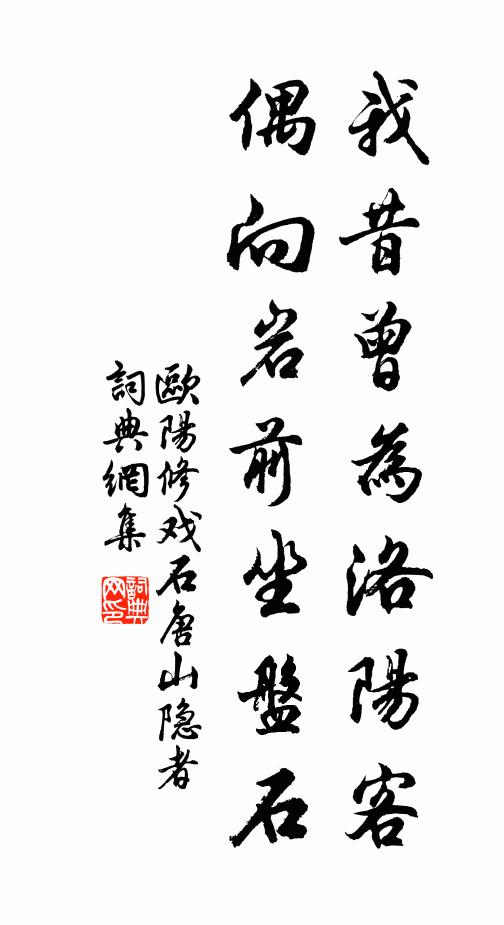 我昔曾為洛陽客
偶向岩前坐盤石
歐陽修戏石唐山隐者
詞典網集